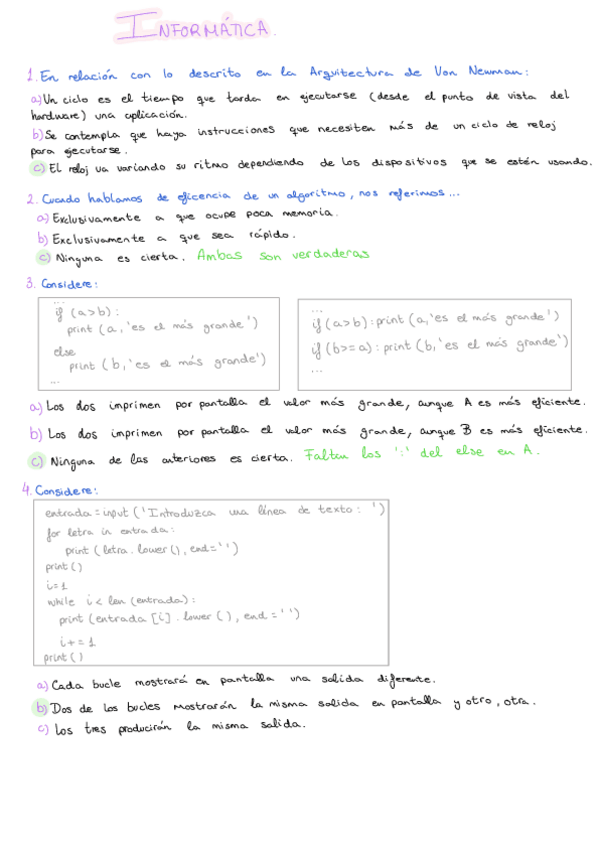 INFORMÁTICA.
1. En relación con lo descrito en la Arquitectura de Von Newman:
a) Un ciclo es el tiempo que tarda en ejecutarse (desde el punto de vista del
hardware) una aplicación.
b) Se contempla que haya instrucciones que necesiten más de un ciclo de reloj
para ejecutarse.
c) El reloj va variando su ritmo dependiendo de los dispositivos que se estén usando.
2. Cuando hablamos de eficencia de un algoritmo, nos referimos...
a) Exclusivamente a que ocupe poca memoria.
b) Exclusivamente a que sea rápido.
c) Ninguna es cierta. Ambas son verdaderas
3. Considere:
...
if (a>b):
print (a, 'es el más grande')
else
print (b, 'es el más grande')
...
...
if (a>b): print (a, 'es el más grande')
if (b>=a): print (b, 'es el más grande')
...
a) Los dos imprimen por pantalla el valor más grande, aunque A es más eficiente.
b) Los dos imprimen por pantalla el valor más grande, aunque B es más eficiente.
c) Ninguna de las anteriores es cierta. Falten los ':' del else en A.
4. Considere:
entrada = input ('Introduzca una línea de texto: ')
for letra in entrada:
print (letra.lower(), end='')
print()
i=1
while i < len (entrada):
print (entrada [i]. lower (), end = '')
i+=1
print()
a) Cada bucle mostrará en pantalla una salida diferente.
b) Dos de los bucles mostrarán la misma salida en pantalla y otro, otra.
c) Los tres producirán la misma salida.